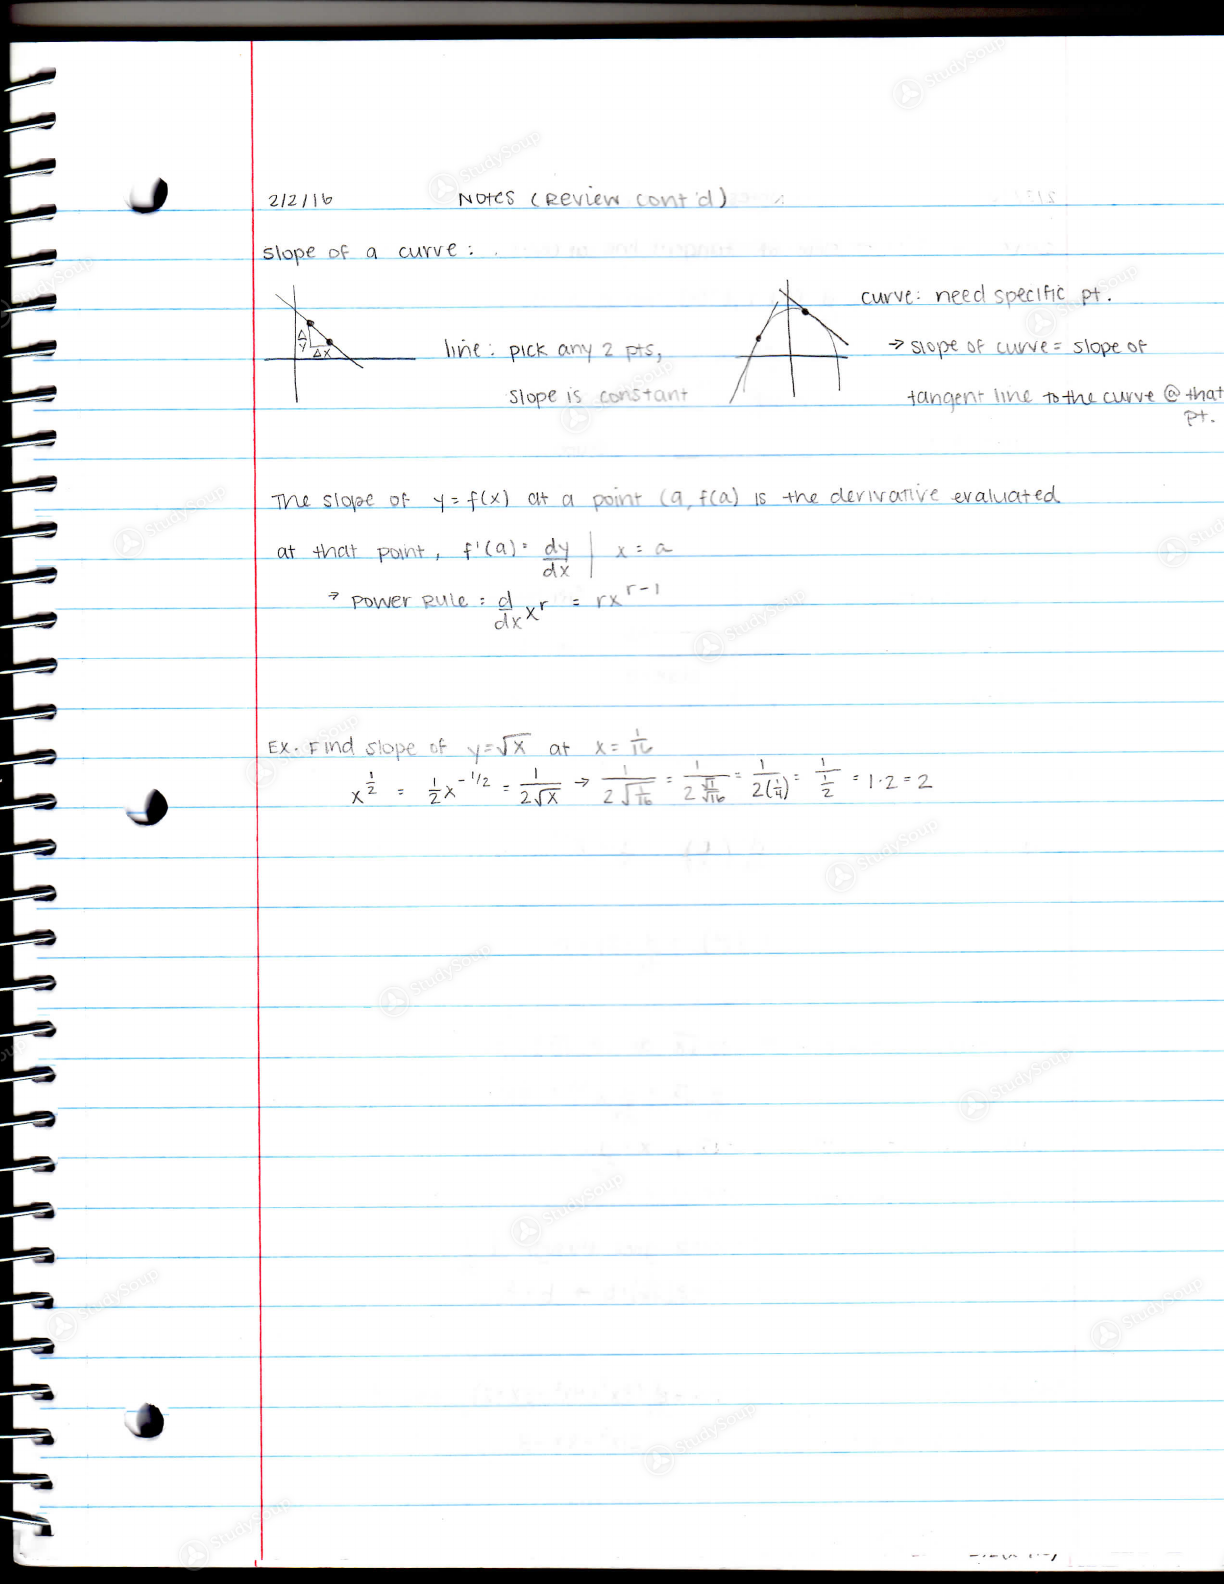 2/2/16 NOTES (REVIEW CONT'D)
slope of a curve:
Δy
Δx
line: pick any 2 pts,
slope is constant
curve: need specific pt.
→ slope of curve = slope of
tangent line to the curve @ that
pt.
The slope of y = f(x) at a point (a, f(a) is the derivative evaluated
at that point, f'(a) = dy/dx | x = a
→ POWER RULE: d/dx x^r = rx^(r-1)
EX. Find slope of y=√x at x = 1/16
x^(1/2) = 1/2 x^(-1/2) = 1/(2√x) → 1/(2√(1/16)) = 1/(2 √1/√16) = 1/(2(1/4)) = 1/(1/2) = 1·2 = 2
StudySoup